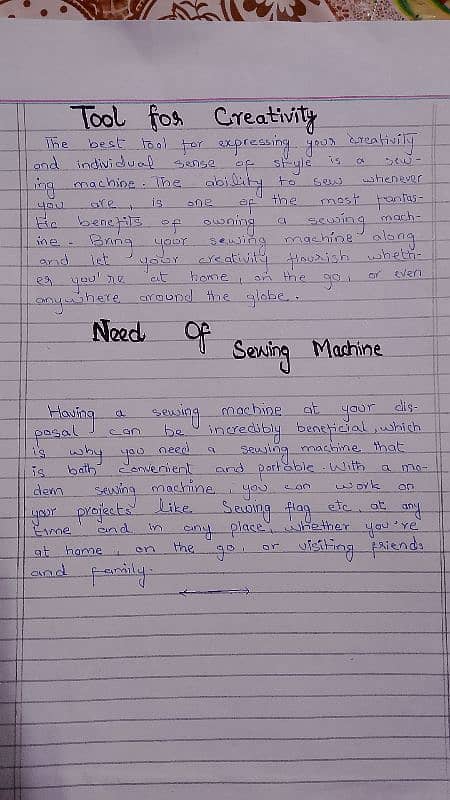 Tool for Creativity
The best tool for expressing your creativity
and individual sense of style is a sew-
ing machine. The ability to sew whenever
you are, is one of the most fantas-
tic benefits of owning a sewing mach-
ine. Bring your sewing machine along
and let your creativity flourish wheth-
er you're at home, on the go, or even
anywhere around the globe.
Need Of
Sewing Machine
Having a sewing machine at your dis-
posal can be incredibly beneficial, which
is why you need a sewing machine that
is both convenient and portable. With a mo-
dern sewing machine, you can work on
your projects like Sewing flag etc. at any
time and in any place, whether you're
at home, on the go, or visiting friends
and family.